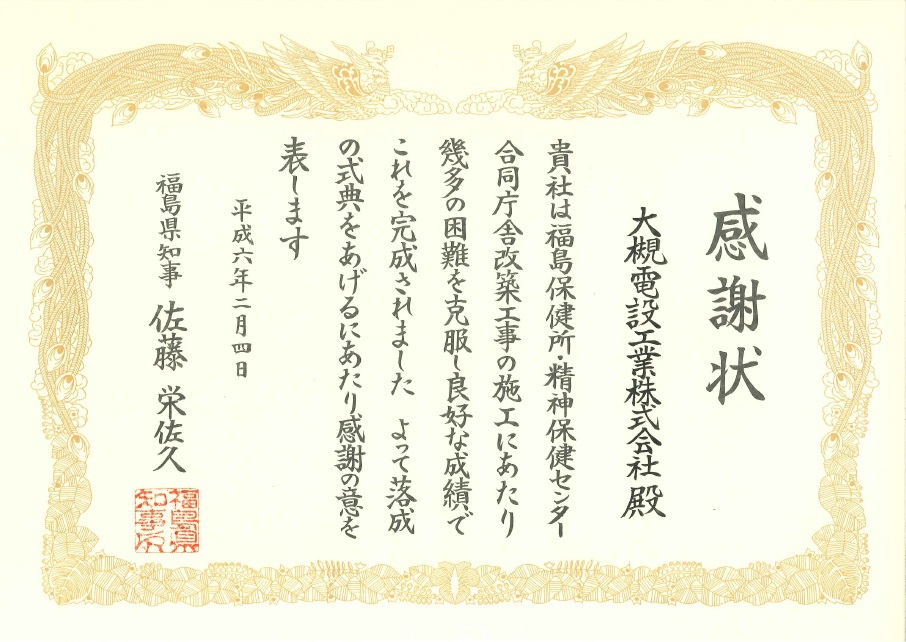 感謝状
大槻電設工業株式会社 殿
貴社は福島保健所・精神保健センター
合同庁舎改築工事の施工にあたり
幾多の困難を克服し良好な成績で
これを完成されました よって落成
の式典をあげるにあたり感謝の意を
表します
平成六年二月四日
福島県知事 佐藤 栄佐久
福島県
知事印